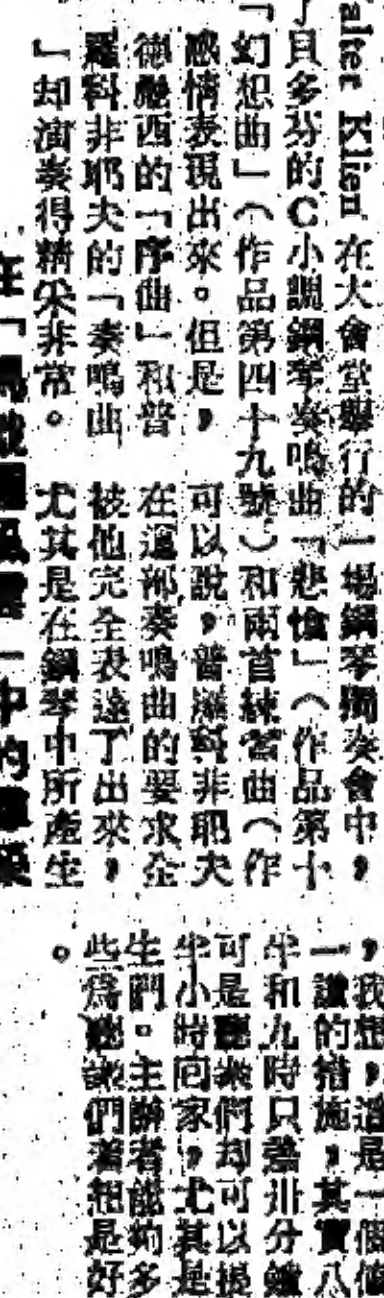 alter Klien 在大會堂舉行的一場鋼琴獨奏會中，
了貝多芬的C小調鋼琴奏鳴曲「悲愴」（作品第十
「幻想曲」（作品第四十九號）和兩首練習曲（作
感情表現出來。但是，可以說，普羅科非耶夫
德彪西的「序曲」和普在這部奏鳴曲的要求全
羅科非耶夫的「奏鳴曲被他完全表達了出來，
」却演奏得精采非常。尤其是在鋼琴中所產生
在「
中的
，我想，這是一個值
一讚的措施，其實八
半和九時只差卅分鐘
可是聽衆們却可以提
半小時回家，尤其是
生們。主辦者能夠多
些爲聽衆們着想是好
。